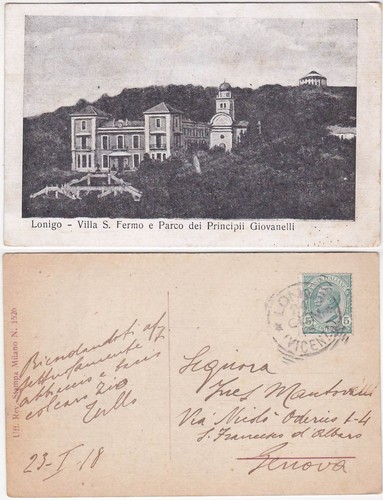 Lonigo - Villa S. Fermo e Parco dei Principii Giovanelli
Uff. Rev. Stampa Milano N. 1520
Ricordandoti aff
abbraccio e
col caro zio
Tullo
23-I-18
LONIGO
(VICENZA)
Signora
Ines Mantovelli
Via Nicolò Oderico 1-4
S. Francesco d'Albaro
Genova